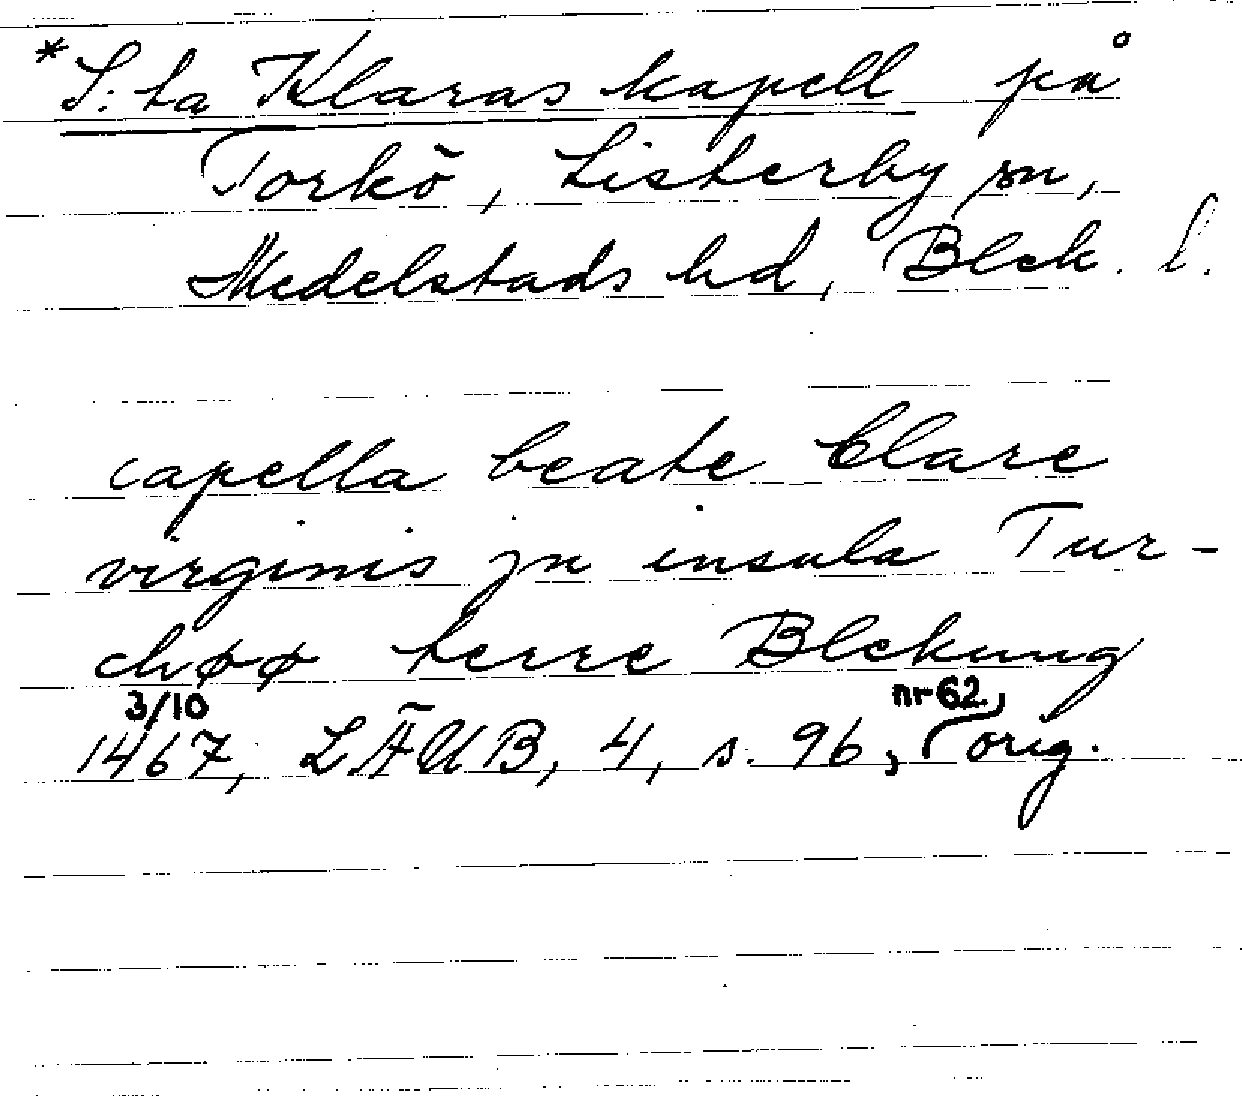 *S:ta Klaras kapell på
Torkö, Listerby sn,
Medelstads hd, Blek. l.
capella beate Clare
virginis jn insula Tur-
chøø terre Blekung
3/10 nr 62.
1467, LÄUB, 4, s. 96, orig.